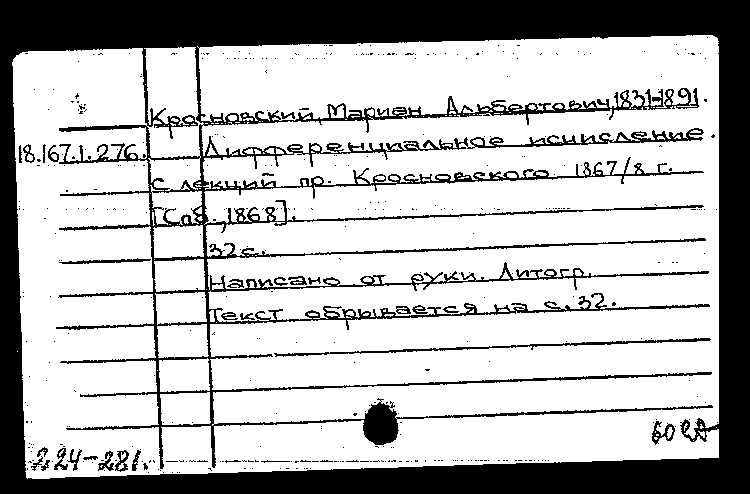 Красновский, Мариен Альбертович, 1831-1891.
18.167.1.276. Дифференциальное исчисление.
С лекций пр. Красновского 1867/8 г.
[Спб., 1868].
32 с.
Написано от руки. Литогр.
Текст обрывается на с. 32.
224-281.